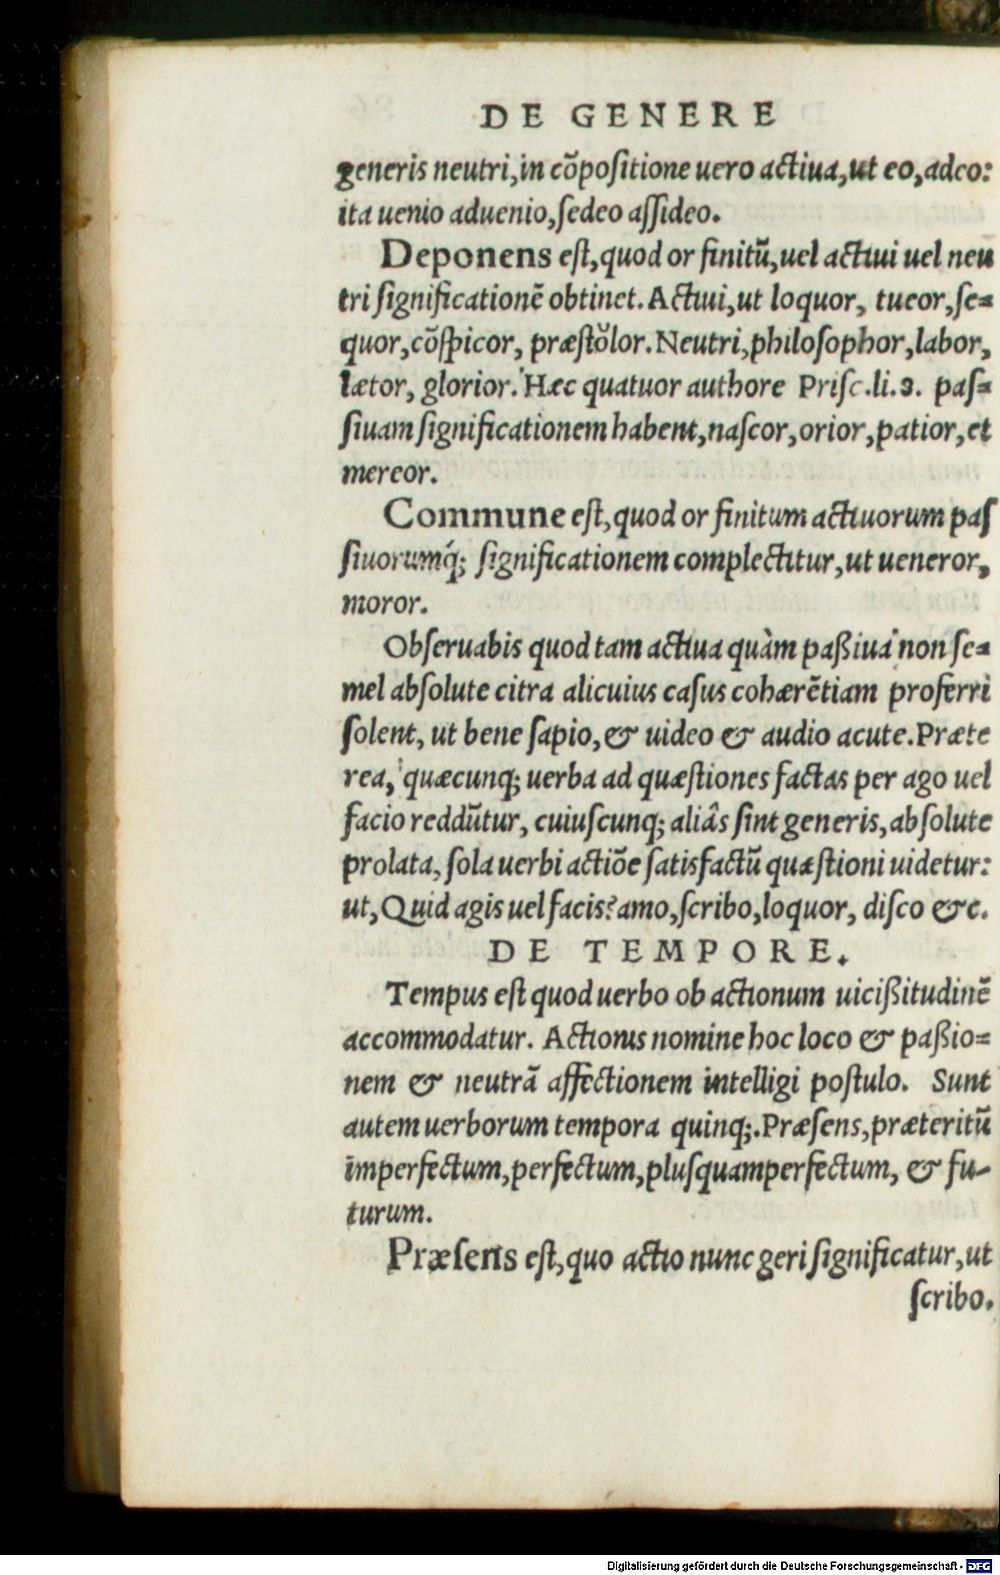 DE GENERE
generis neutri, in cõpositione uero actiua, ut eo, adeo:
ita uenio aduenio, sedeo assideo.
Deponens est, quod or finitũ, uel actiui uel neu
tri significationẽ obtinet. Actiui, ut loquor, tueor, se=
quor, cõspicor, præstolor. Neutri, philosophor, labor,
lætor, glorior. Hæc quatuor authore Prisc.li.8. pas=
siuam significationem habent, nascor, orior, patior, et
mereor.
Commune est, quod or finitum actiuorum pas
siuorumq́; significationem complectitur, ut ueneror,
moror.
Obseruabis quod tam actiua quàm paßiua non se=
mel absolute citra alicuius casus cohærẽtiam proferri
solent, ut bene sapio, & uideo & audio acute. Præte
rea, quæcunq; uerba ad quæstiones factas per ago uel
facio reddũtur, cuiuscunq; aliâs sint generis, absolute
prolata, sola uerbi actiõe satisfactũ quæstioni uidetur:
ut, Quid agis uel facis? amo, scribo, loquor, disco &c.
DE TEMPORE.
Tempus est quod uerbo ob actionum uicißitudinẽ
accommodatur. Actionis nomine hoc loco & paßio=
nem & neutrã affectionem intelligi postulo. Sunt
autem uerborum tempora quinq;. Præsens, præteritũ
imperfectum, perfectum, plusquamperfectum, & fu-
turum.
Præsens est, quo actio nunc geri significatur, ut
scribo.
Digitalisierung gefördert durch die Deutsche Forschungsgemeinschaft - DFG